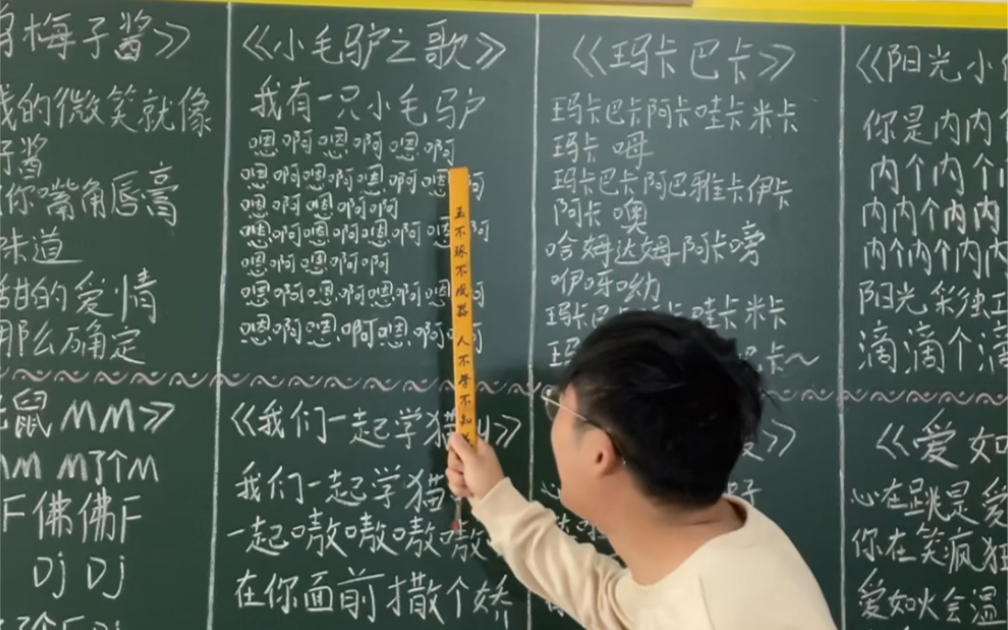 梅子酱》
我的微笑就像
酱
你嘴角唇膏
味道
甜的爱情
那么确定
《小毛驴之歌》
我有一只小毛驴
嗯啊嗯啊嗯啊
嗯啊啊嗯啊嗯啊
嗯啊嗯啊啊
嗯啊嗯啊啊嗯啊
嗯啊嗯啊啊
嗯啊嗯啊嗯啊
嗯啊嗯啊嗯啊
《玛卡巴卡》
玛卡巴卡阿卡哇卡米卡
玛卡呣
玛卡巴卡阿巴雅卡伊卡
阿卡噢
哈姆达姆阿卡嗙
咿呀呦
玛卡巴卡 哇卡米卡
卡~
《阳光小
你是内内
内个内个内
内内个内内
内个内个内内
阳光彩
滴滴个滴
玉不琢不成器 人不学不知
鼠MM》
M M个M
F佛佛F
Dj Dj
《我们一起学猫叫》
我们一起学猫
一起嗷嗷嗷嗷
在你面前撒个娇
《爱如
心在跳是爱
你在笑疯狂
爱如火会温